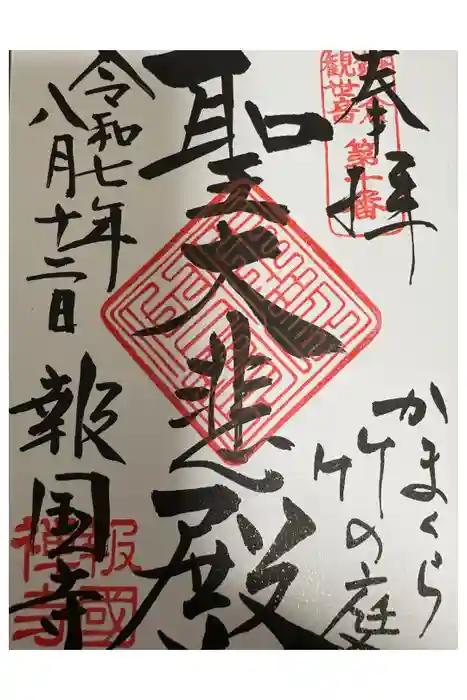 奉拝
観世音 第十番
かまくら
竹の庭
聖大悲殿
令和七年
八月十二日
報国寺
報國
禅寺